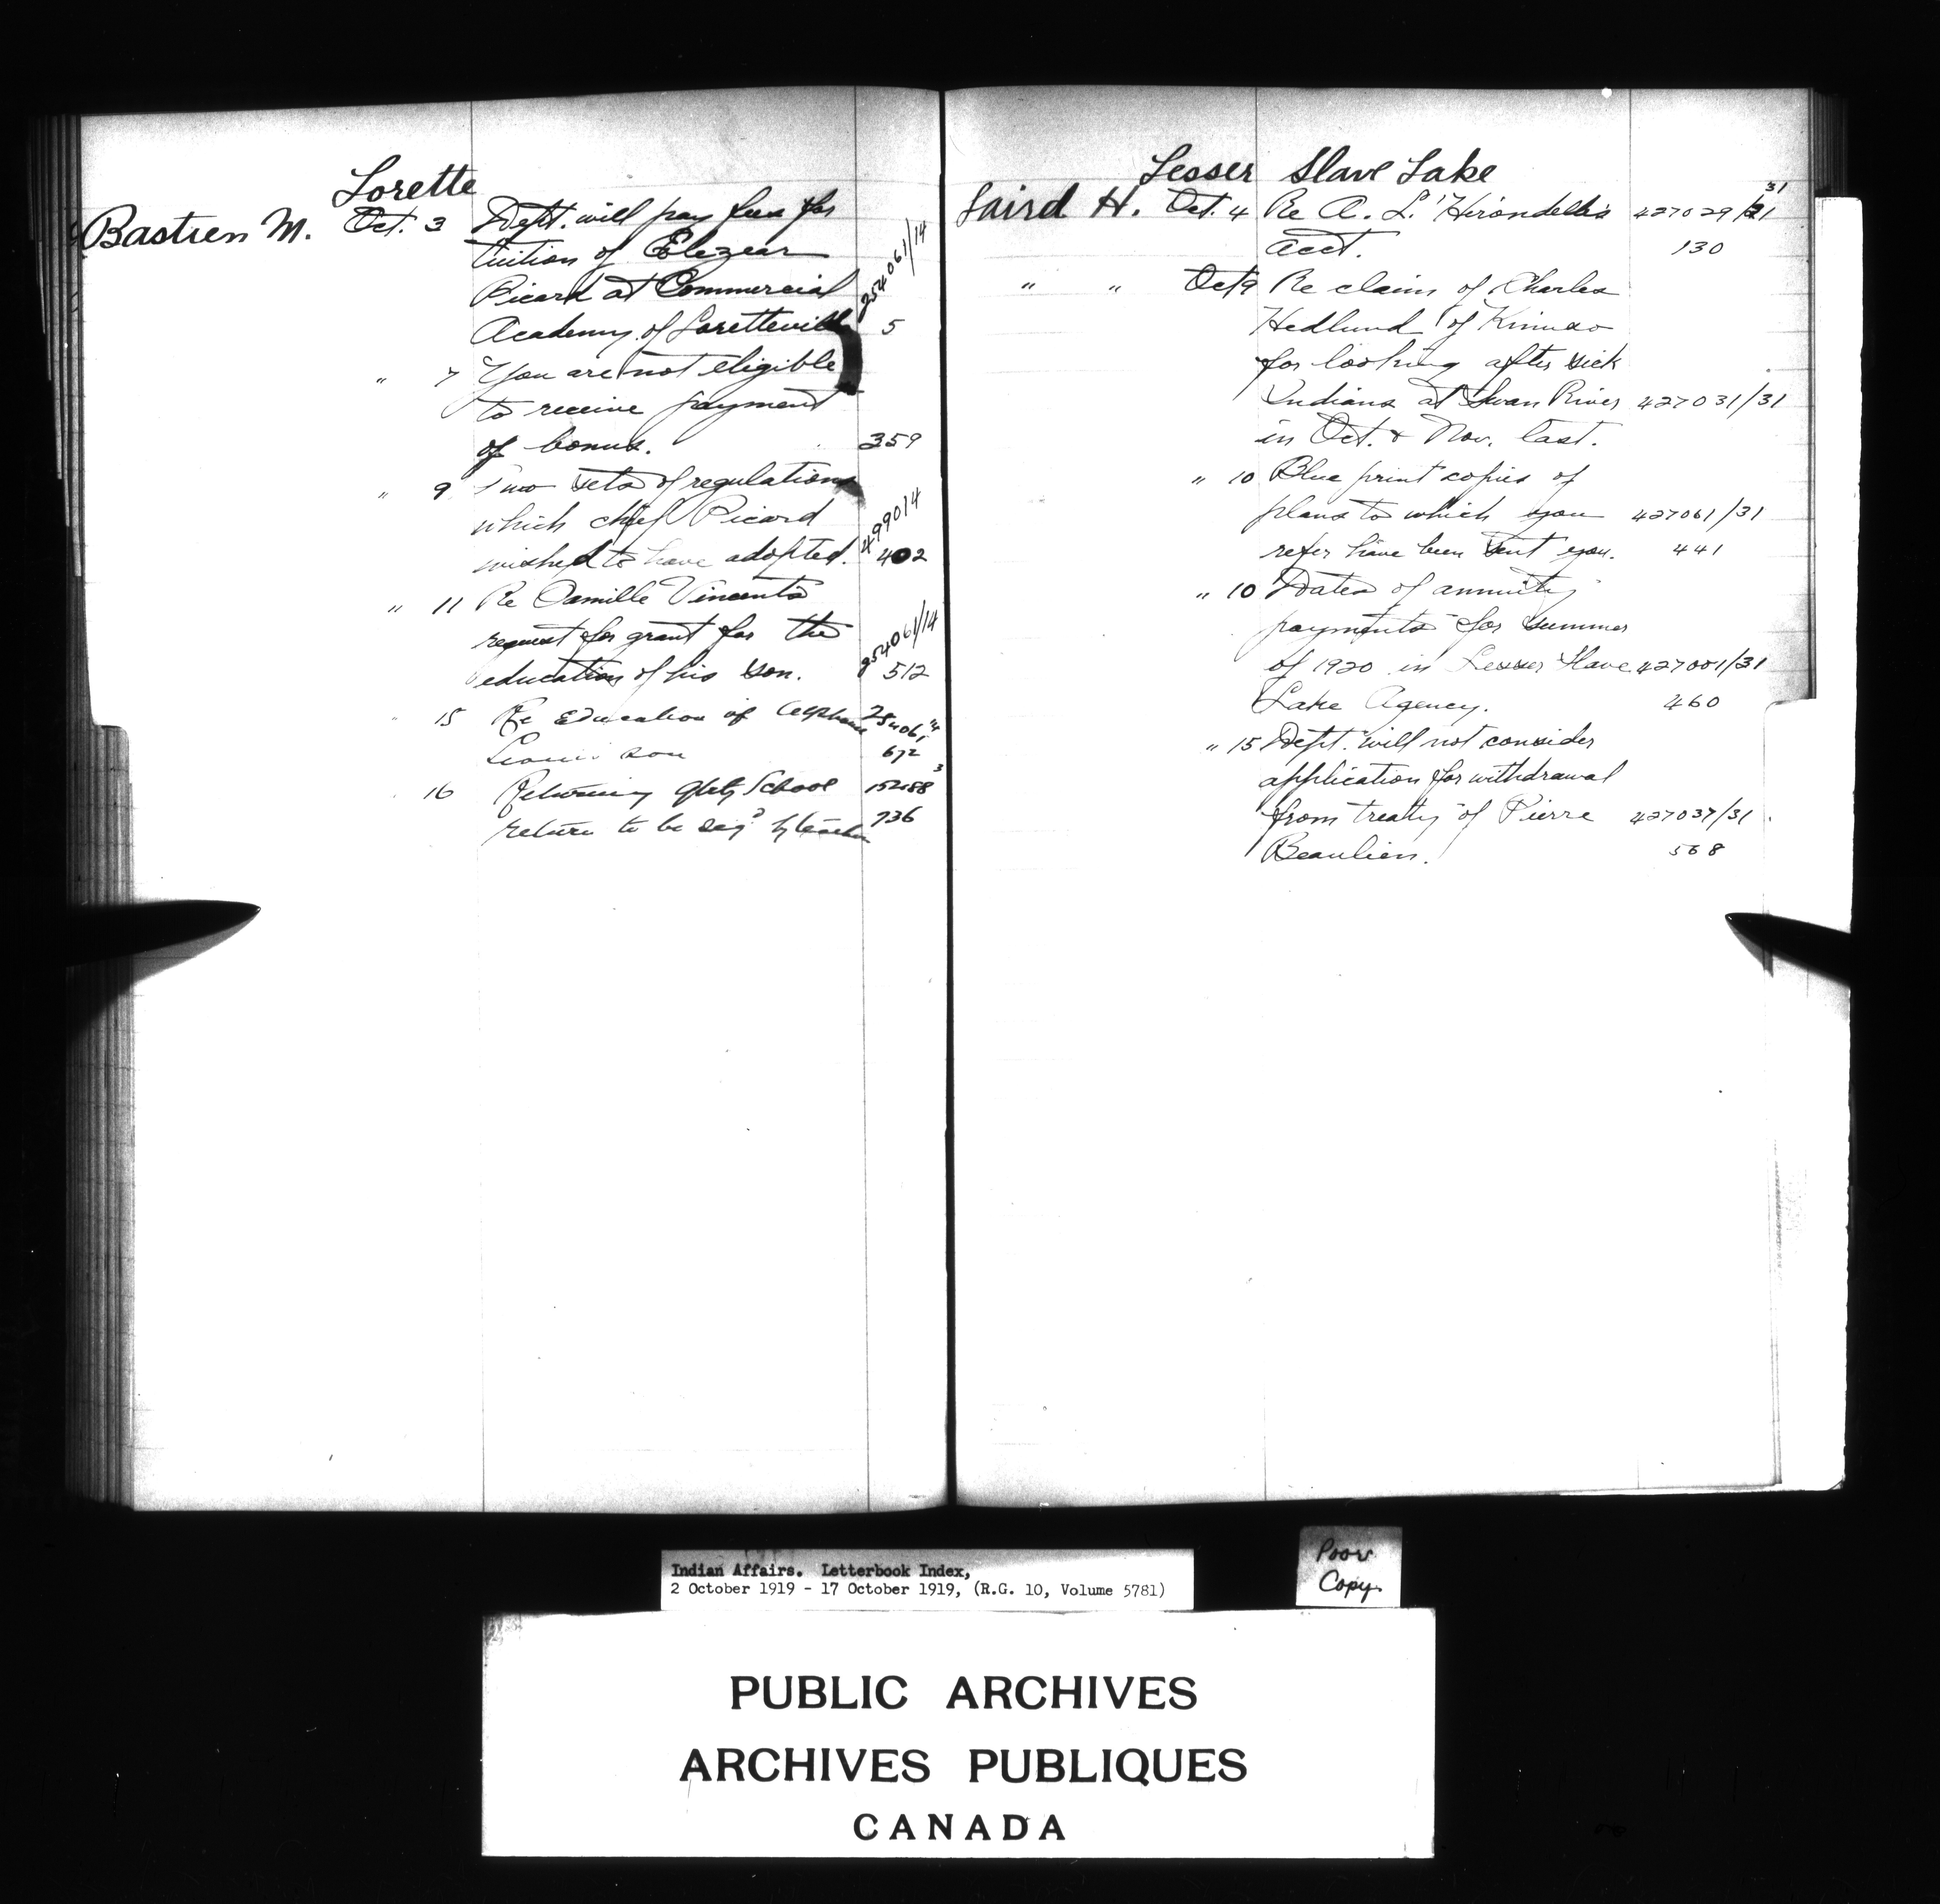 Lorette
Bastien M. Oct. 3 Dept. will pay fees for
tuition of Elezear
Picard at Commercial 254061/14
Academy of Loretteville 5
" 7 You are not eligible
to receive payment
of bonus. 359
" 9 Two sets of regulations
which chief Picard 49901/4
wished to have adopted. 402
" 11 Re Camille Vincents
request for grant for the 254061/14
education of his son. 512
" 15 Re Education of Alphonse 254061/14
son 672
16 Returning qtly School
return to be sigd by teacher 736
Lesser Slave Lake
Laird H. Oct. 4 Re A. L'Hirondelle's 427029/31
acct. 130
" " Oct 9 Re claim of Charles
Hedlund of Kinuso
for looking after sick
Indians at Swan River 427031/31
in Oct. & Nov. last.
" 10 Blue print copies of
plans to which you 427061/31
refer have been sent you. 441
" 10 Dates of annuity
payments for summer
of 1920 in Lesser Slave 427001/31
Lake Agency. 460
" 15 Dept. will not consider
application for withdrawal
from treaty of Pierre 427037/31
Beaulieu. 568
Indian Affairs. Letterbook Index,
2 October 1919 - 17 October 1919, (R.G. 10, Volume 5781)
Poor
Copy.
PUBLIC ARCHIVES
ARCHIVES PUBLIQUES
CANADA